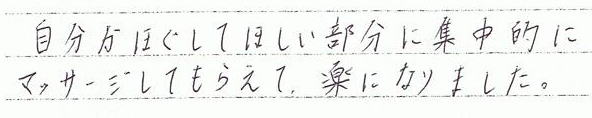 自分がほぐしてほしい部分に集中的に
マッサージしてもらえて、楽になりました。